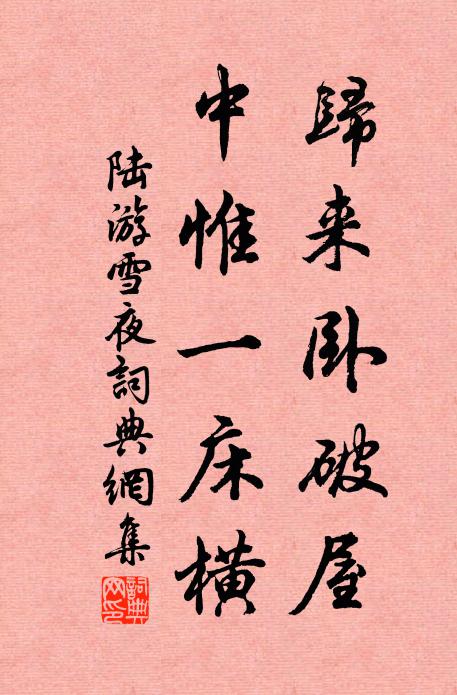 歸来卧破屋
中惟一床横
陆游雪夜詞典網集
詞典網印